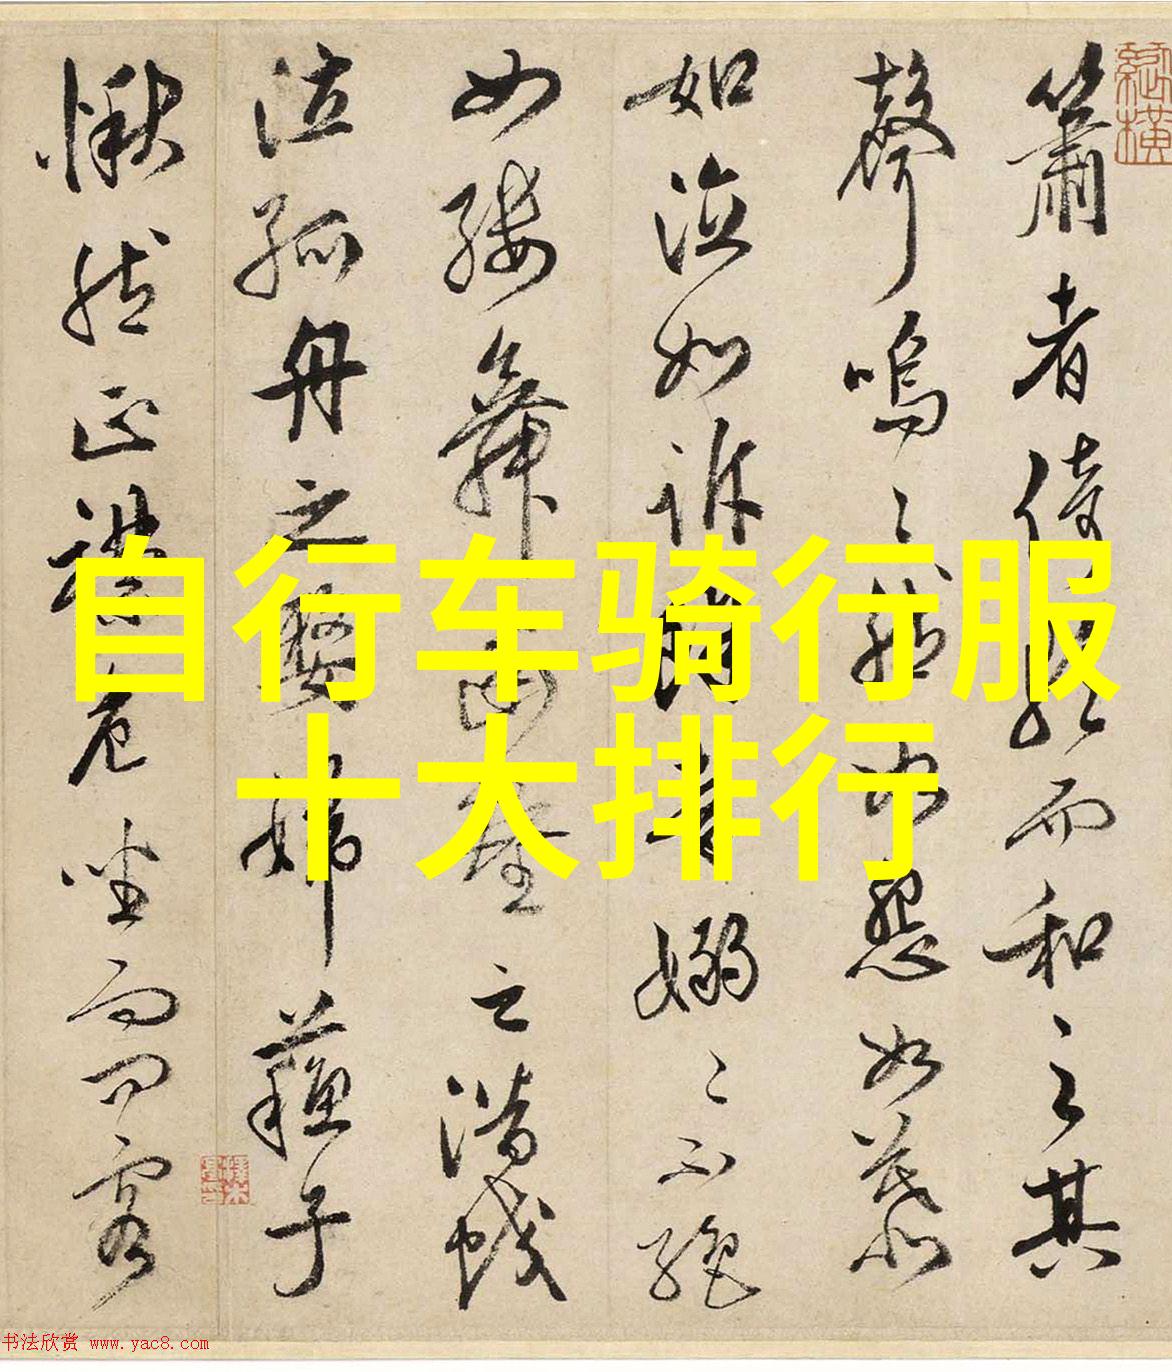 自行车骑行服
十大排行
簫者倚歌而和之其
聲嗚〻然如怨如慕
如泣如訴餘音嫋〻不絕
如縷舞幽壑之潛蛟
泣孤舟之嫠婦蘇子
愀然正襟危坐而問客
书法欣赏 www.yac8.com